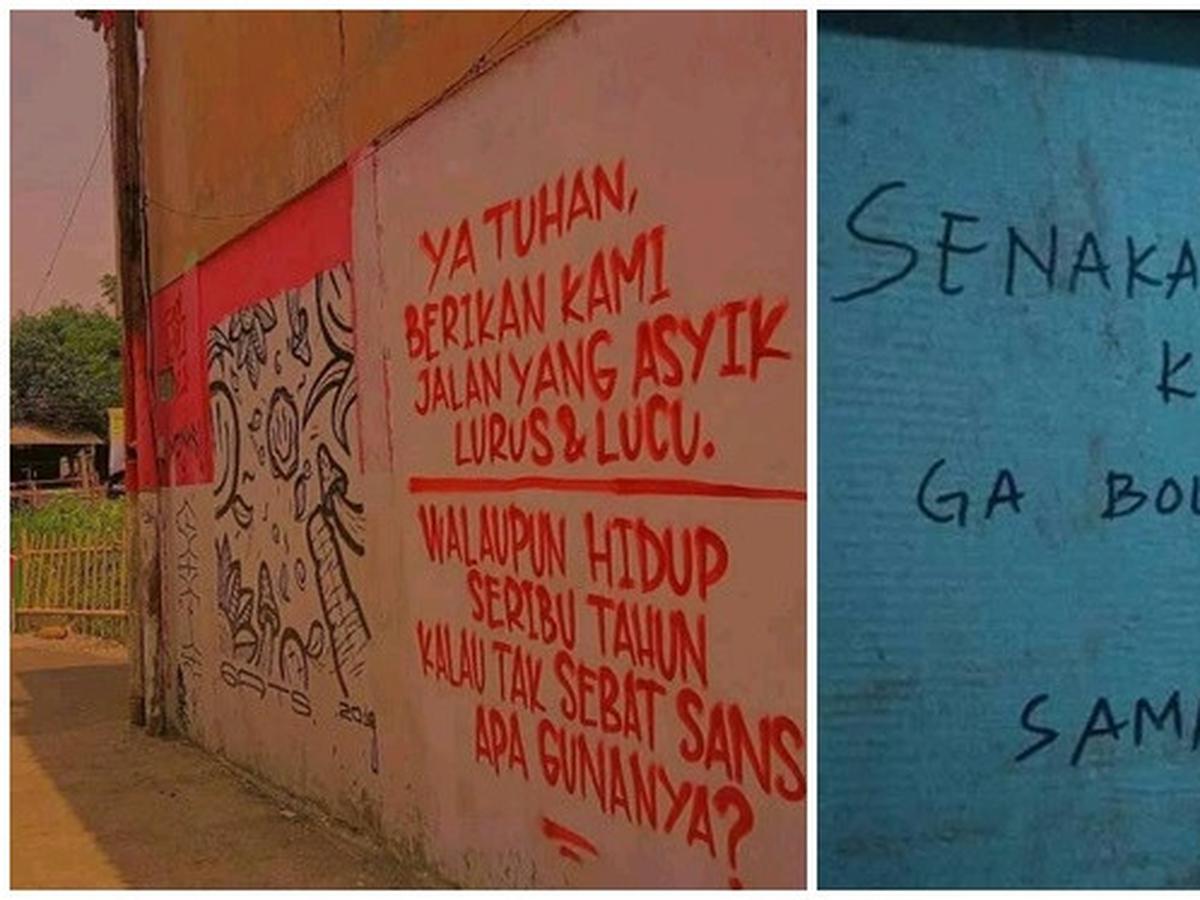 YA TUHAN,
BERIKAN KAMI
JALAN YANG ASYIK
LURUS & LUCU.
WALAUPUN HIDUP
SERIBU TAHUN
KALAU TAK SEBAT SANS
APA GUNANYA?
SATS. 2019
SENAKA
K
GA BOL
SAMA